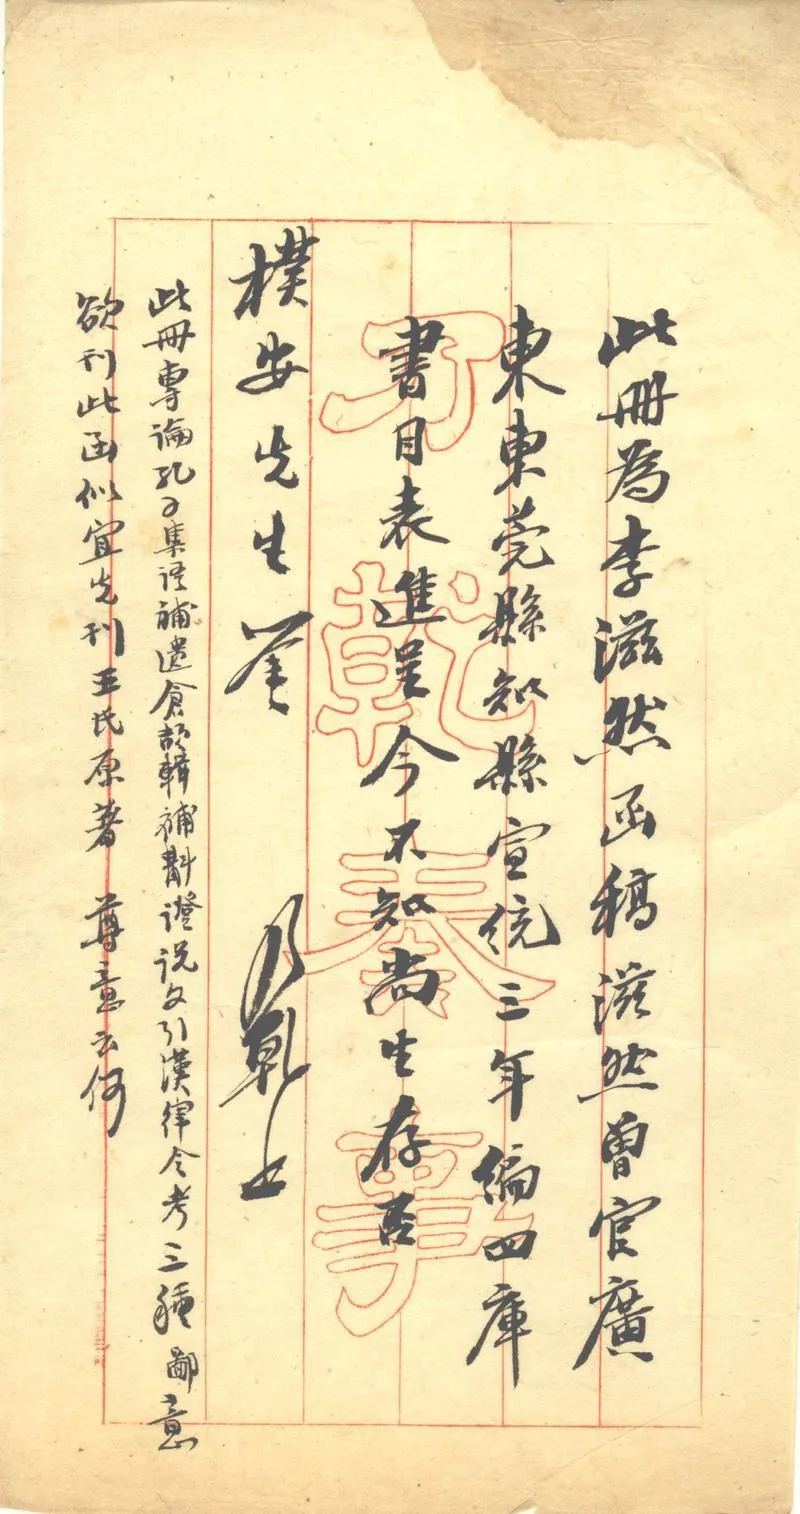 此冊為李滋然函稿滋然曾官廣
東東莞縣知縣宣統三年編四庫
書目表進呈今不知尚生存否
樸安先生鉴
乃乾上
此冊專論孔子集語補遺倉頡輯補斠證說文引漢律令考三種鄙意
欲刊此函似宜先刊王氏原著 尊意云何
乃乾奏事